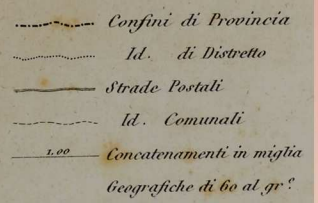 Confini di Provincia
Id. di Distretto
Strade Postali
Id. Comunali
1.00 Concatenamenti in miglia
Geografiche di 60 al gr.º